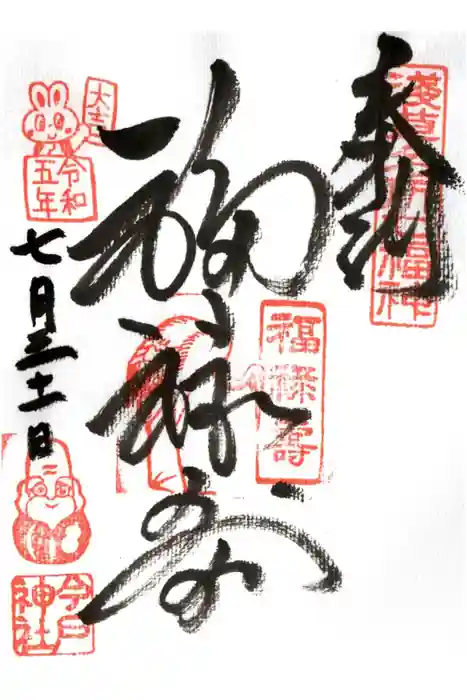 奉拝
浅草名所七福神
福禄寿
福禄寿
大吉
令和
五年
七月三十一日
今戸
神社